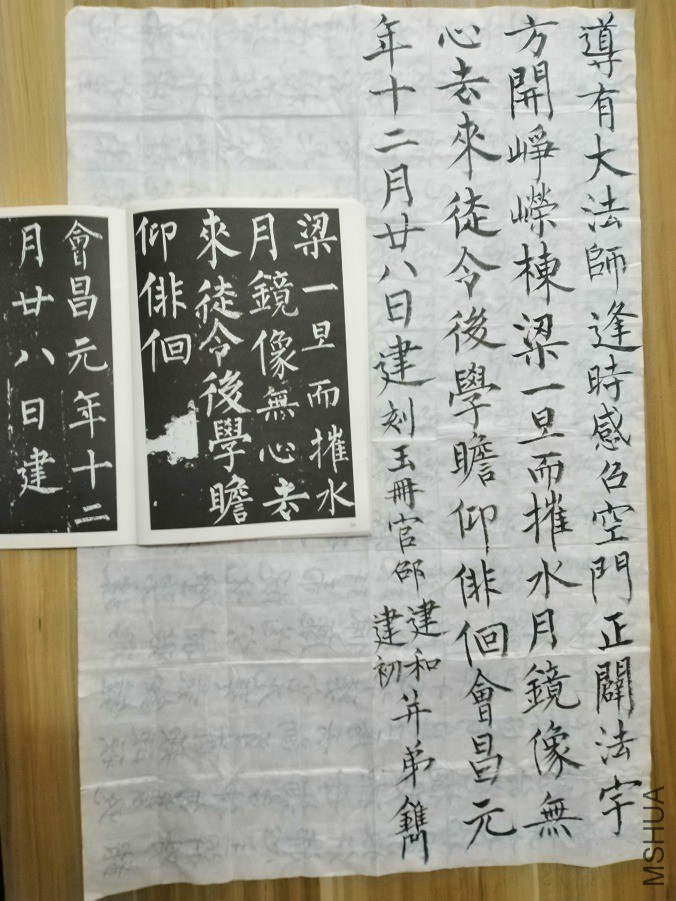 導有大法師逢時感召空門正闢法宇
方開崢嶸棟梁一旦而摧水月鏡像無
心去來徒令後學瞻仰徘徊會昌元
年十二月廿八日建刻玉冊官邵建和建初并弟鐫
梁一旦而摧水
月鏡像無心去
來徒令後學瞻
仰徘徊
會昌元年十二
月廿八日建
MSHUA